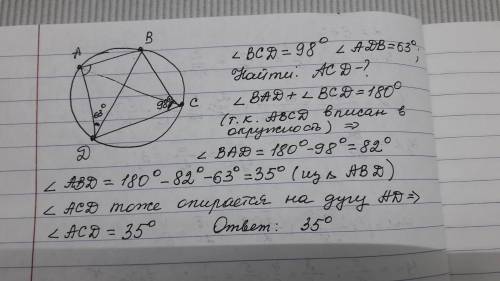 A
B
C
D
63°
98°
∠BCD = 98° ∠ADB = 63°;
Найти: ACD - ?
∠BAD + ∠BCD = 180°
(т.к. ABCD вписан в
окружность) ⇒
∠BAD = 180° - 98° = 82°
∠ABD = 180° - 82° - 63° = 35° (из ∆ ABD)
∠ACD тоже опирается на дугу AD ⇒
∠ACD = 35° Ответ: 35°